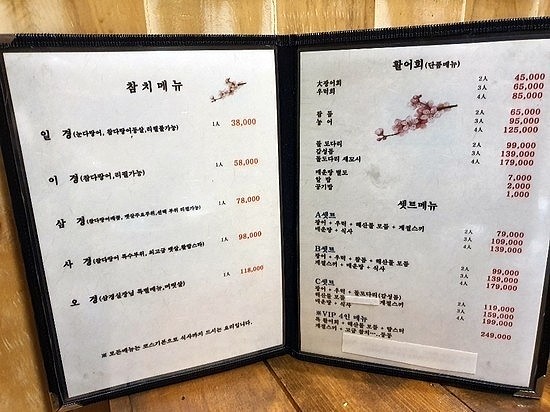 참치메뉴
일 경(눈다랑어, 참다랑어등살,리필불가능) 1人 38,000
이 경(참다랑어,리필가능) 1人 58,000
삼 경(참다랑어배꼽, 뱃살주요부위,선택 부위 리필가능) 1人 78,000
사 경(참다랑어 특수부위, 최고급 뱃살,불랍스타) 1人 98,000
오 경(실장님 특별메뉴,머릿살) 1人 118,000
※ 모든메뉴는 코스기본으로 식사까지 드시는 요리입니다.
활어회(단품메뉴)
大광어회 2人 45,000
우럭회 3人 65,000
4人 85,000
참돔 2人 65,000
농어 3人 95,000
4人 125,000
돌도다리 2人 99,000
감성돔 3人 139,000
돌도다리 세꼬시 4人 179,000
매운탕 별도 7,000
알밥 2,000
공기밥 1,000
셋트메뉴
A셋트
광어 + 우럭 + 해산물 모듬 + 계절스끼 2人 79,000
매운탕 + 식사 3人 109,000
4人 139,000
B셋트
광어 + 우럭 + 참돔 + 해산물 모듬
계절스끼 + 매운탕 + 식사 2人 99,000
3人 139,000
4人 179,000
C셋트
광어 + 우럭 + 돌도다리(감성돔)
해산물 모듬 계절스끼 2人 119,000
매운탕 + 식사 3人 159,000
4人 199,000
※VIP 4인 메뉴
특 활어회 + 해산물 모듬 + 랍스터
계절스끼 + 고급 참치··· 등등 249,000